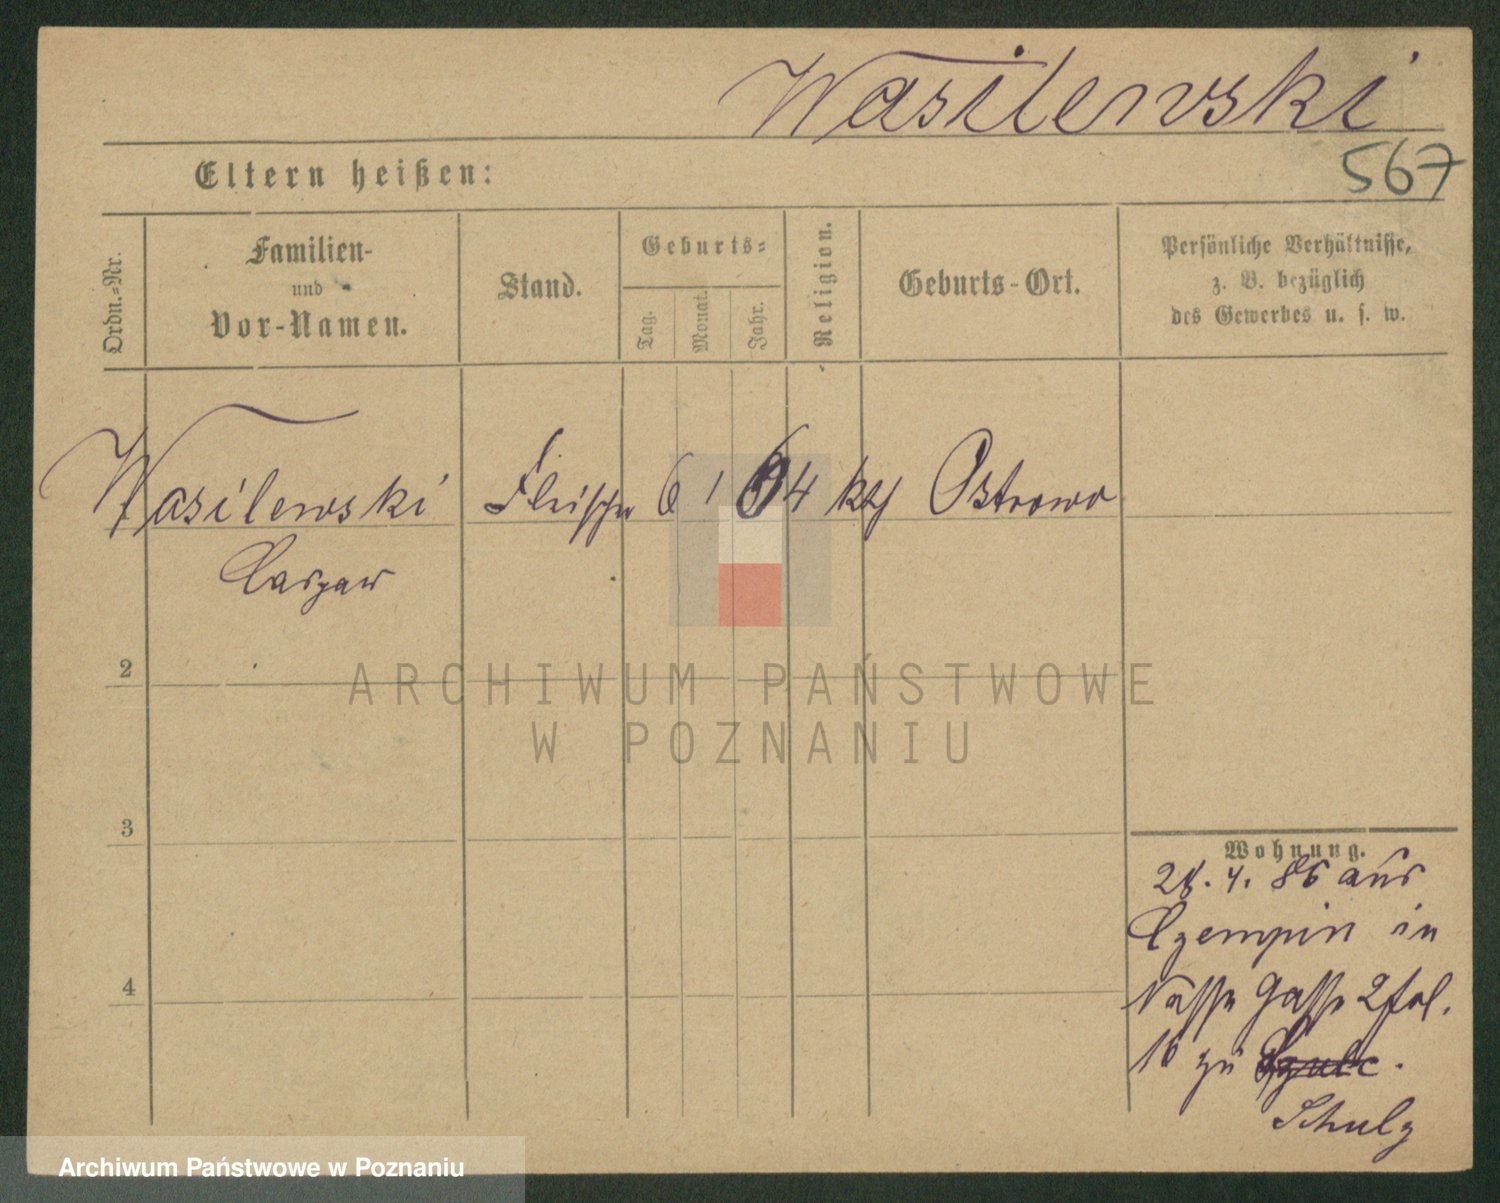 Wasilewski
567
Eltern heißen:
Ordn.=Nr.
Familien-
und
Vor-Namen.
Stand.
Geburts=
Tag.
Monat.
Jahr.
Religion.
Geburts-Ort.
Persönliche Verhältnisse,
z. B. bezüglich
des Gewerbes u. s. w.
Wasilewski Fleischer 6 1 64 kth Ostrowo
Caspar
2
3
4
Wohnung.
28. 4. 86 aus
Czempin in
Nasse Gasse 2
16 zu Szulc.
Schulz
ARCHIWUM PAŃSTWOWE
W POZNANIU
Archiwum Państwowe w Poznaniu